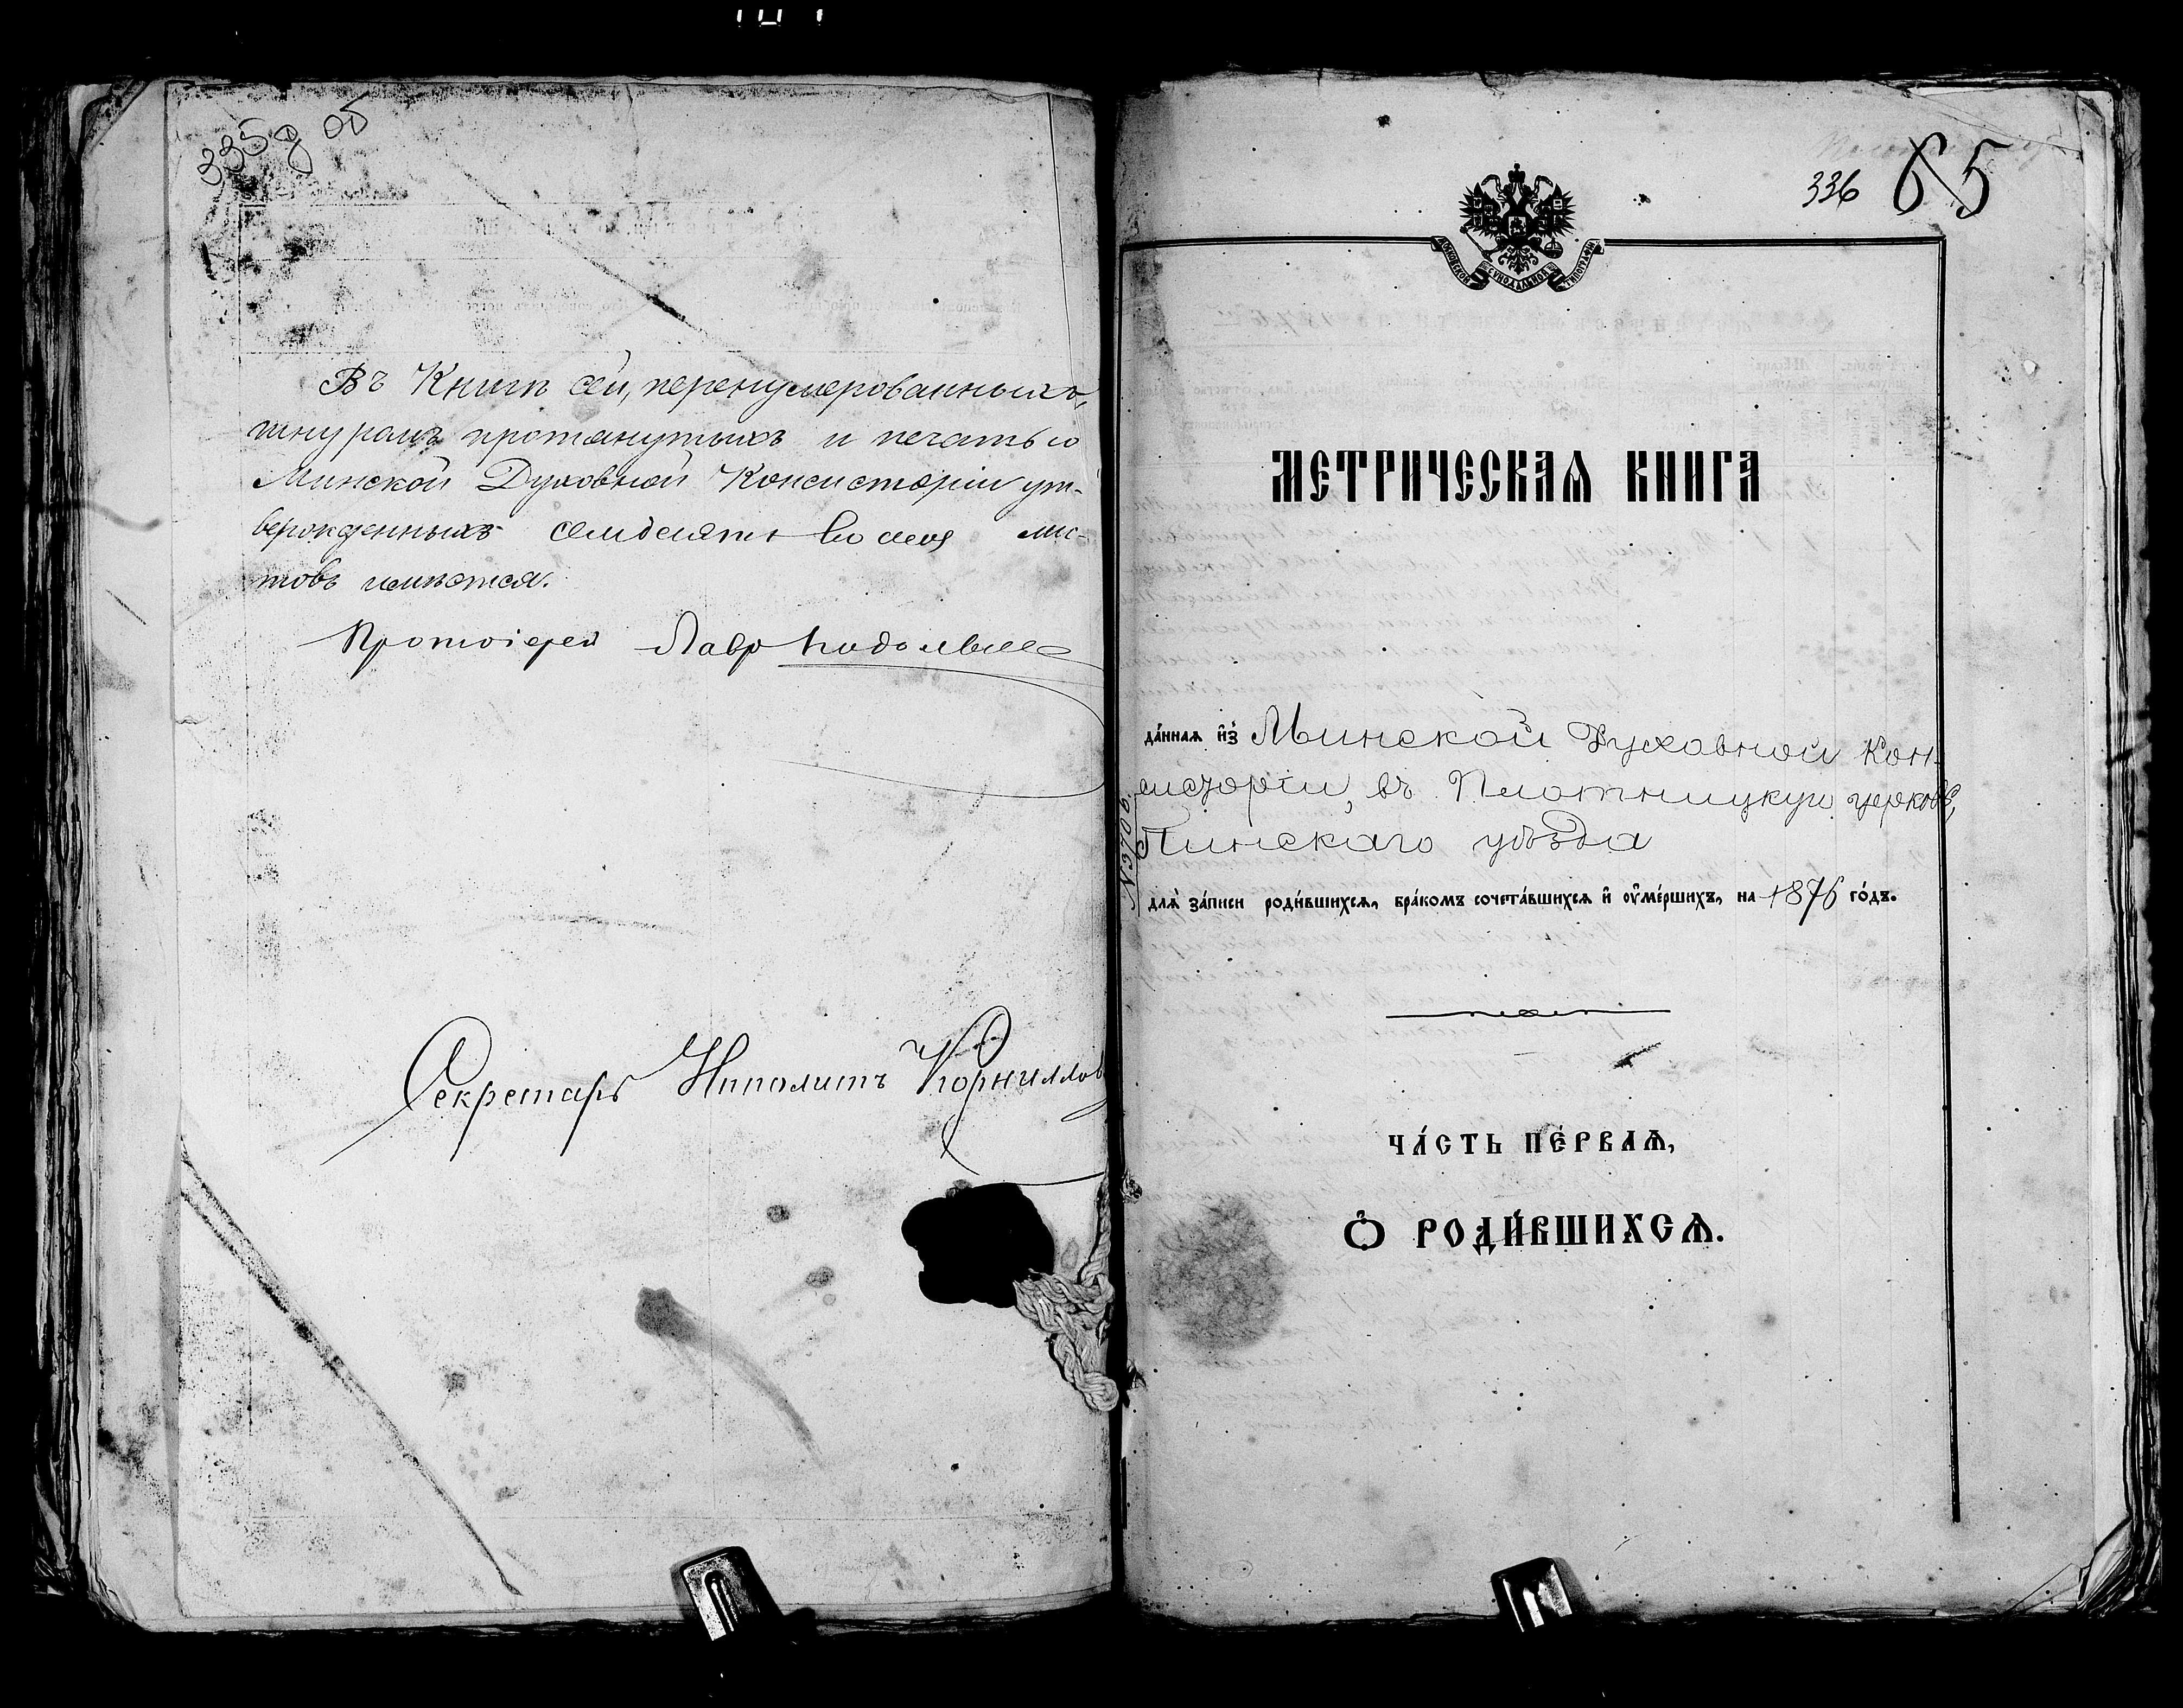 335 д об
Въ Книгѣ сей, перенумерованныхъ,
шнуромъ протянутыхъ и печатью
Минской Духовной Консисторіи ут-
вержденныхъ семьдесятъ восемь лис-
товъ имѣется.
Протоіерей Лавръ
Секретарь Ипполитъ Корниллов
336 65
МОСКОВСКОЙ СѴНОДАЛЬНОЙ ТИПОГРАФІИ
МЕТРИЧЕСКАѦ КНИГА
да́ннаѧ и҆з̾ Минской Духовной Кон-
систоріи, въ Плотницкую церковь,
Пинскаго уѣзда
№ 3706.
длѧ̀ за́писи роди́вшихсѧ, бра́комъ сочета́вшихсѧ и҆ ᲂу҆ме́ршихъ, на 1876 го́дъ.
ЧА́СТЬ ПЕ́РВАѦ,
Ѽ РОДИ́ВШИХСѦ.